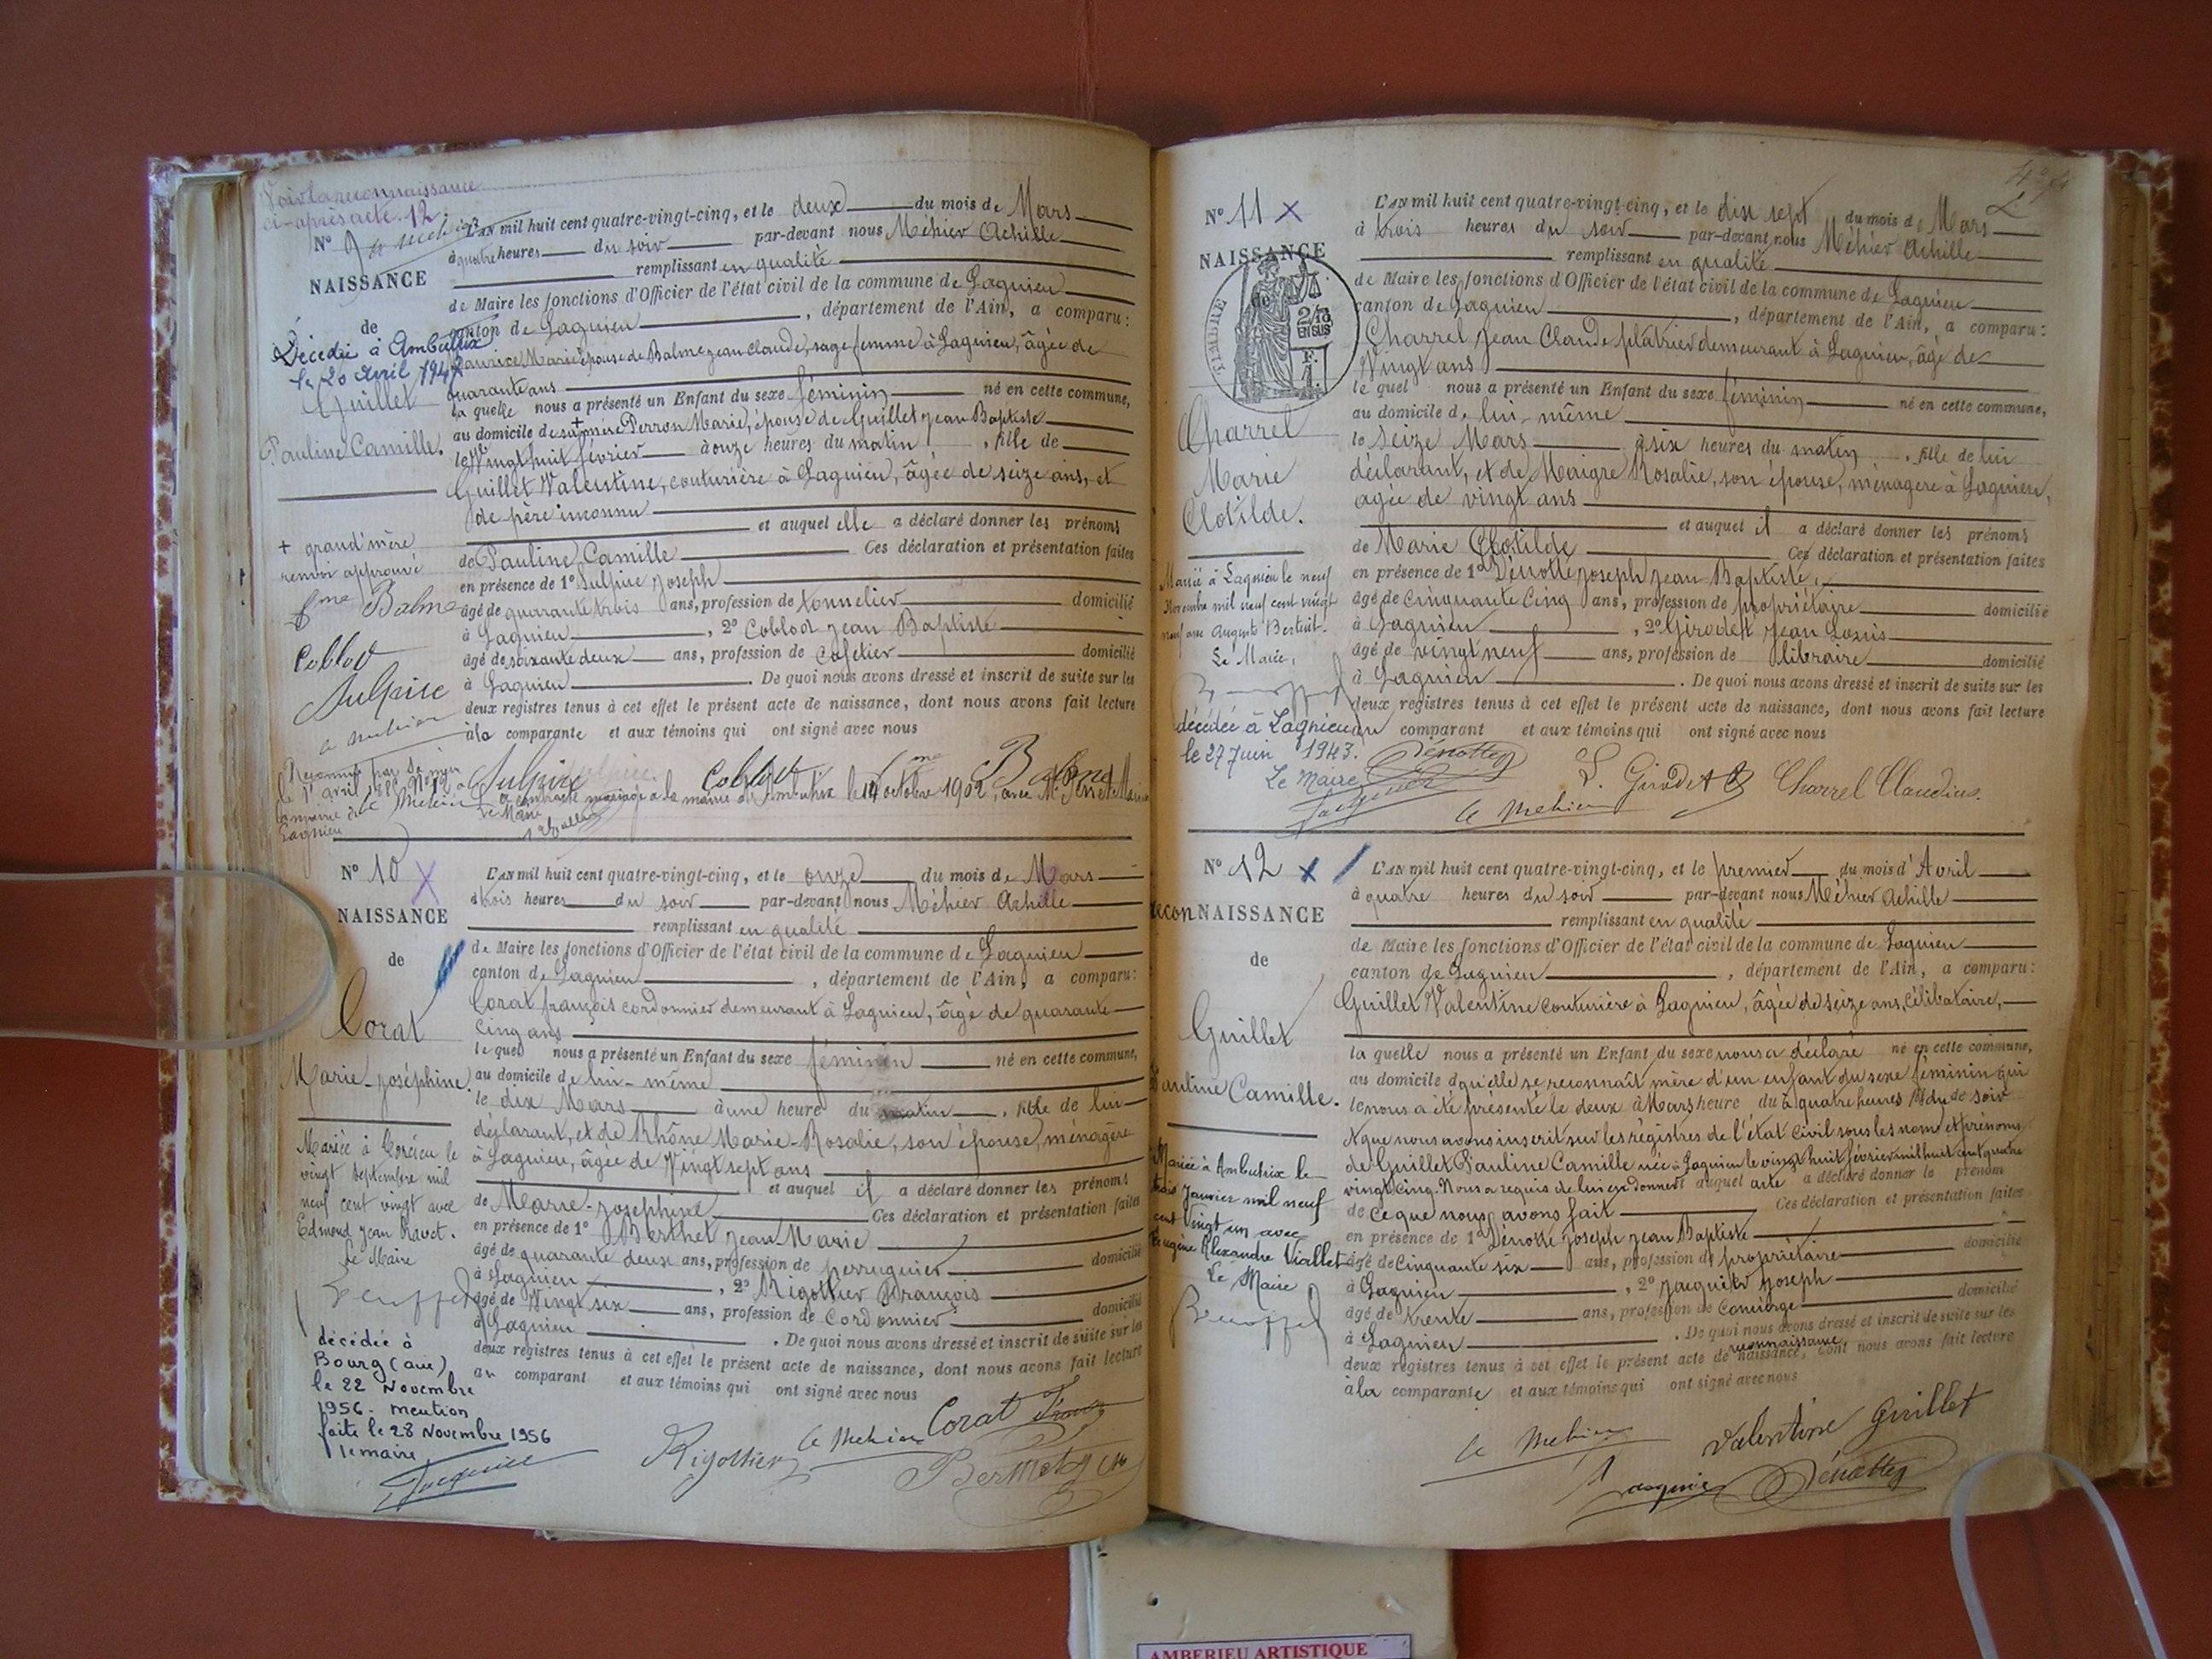 Voir la reconnaissance
ci-après acte 12
N° 9
NAISSANCE
de
Décédée à Ambutrix
le 20 avril 194
Guillet
Pauline Camille.
+ grand'mère
renvoi approuvé
fme Balme
Coblod
Sulpice
a mehier
L'AN mil huit cent quatre-vingt-cinq, et le deux du mois de Mars
à quatre heures du soir par-devant nous Méhier Achille
remplissant en qualité
de Maire les fonctions d'Officier de l'état civil de la commune de Lagnieu
canton de Lagnieu, département de l'Ain, a comparu:
Maurice Marie épouse de Balme Jean Claude, sage femme à Lagnieu, âgée de
quarante ans
la quelle nous a présenté un Enfant du sexe féminin né en cette commune,
au domicile de sa + mère Perron Marie, épouse de Guillet Jean Baptiste
le Vingt huit février à onze heures du matin, fille de
Guillet Valentine, couturière à Lagnieu, âgée de seize ans, et
de père inconnu
et auquel elle a déclaré donner les prénoms
de Pauline Camille Ces déclaration et présentation faites
en présence de 1° Sulpice Joseph
âgé de quarante trois ans, profession de tonnelier domicilié
à Lagnieu, 2° Coblod Jean Baptiste
âgé de soixante deux ans, profession de cafetier domicilié
à Lagnieu. De quoi nous avons dressé et inscrit de suite sur les
deux registres tenus à cet effet le présent acte de naissance, dont nous avons fait lecture
à la comparante et aux témoins qui ont signé avec nous
Sulpice Coblod fme Balme
Reconnue par sa
le 1er avril
Lagnieu
a contracté mariage à la mairie d'Ambutrix le 14 octobre 1902, avec M.
Le Maire
N° 10
NAISSANCE
de
Corat
Marie-Joséphine.
Mariée à Corcieu le
vingt septembre mil
neuf cent vingt avec
Edmond Jean Ravet.
Le Maire
décédée à
Bourg (ain)
le 22 Novembre
1956. mention
faite le 28 Novembre 1956
le maire
L'AN mil huit cent quatre-vingt-cinq, et le onze du mois de Mars
à trois heures du soir par-devant nous Méhier Achille
remplissant en qualité
de Maire les fonctions d'Officier de l'état civil de la commune de Lagnieu
canton de Lagnieu, département de l'Ain, a comparu:
Corat françois cordonnier demeurant à Lagnieu, âgé de quarante
cinq ans
le quel nous a présenté un Enfant du sexe féminin né en cette commune,
au domicile de lui-même
le dix Mars à une heure du matin, fille de lui
déclarant, et de Rhône Marie-Rosalie, son épouse, ménagère
à Lagnieu, âgée de Vingt sept ans
et auquel il a déclaré donner les prénoms
de Marie-Joséphine Ces déclaration et présentation faites
en présence de 1° Berthet Jean Marie
âgé de quarante deux ans, profession de perruquier domicilié
à Lagnieu, 2° Rigollier François
âgé de Vingt six ans, profession de Cordonnier domicilié
à Lagnieu. De quoi nous avons dressé et inscrit de suite sur les
deux registres tenus à cet effet le présent acte de naissance, dont nous avons fait lecture
au comparant et aux témoins qui ont signé avec nous
Rigollier a mehier Corat
N° 11
NAISSANCE
TIMBRE
2/10
EN SUS
F.
1.
Charrel
Marie
Clotilde.
Mariée à Lagnieu le neuf
Novembre mil neuf cent vingt
neuf avec Auguste Berteuit.
Le Maire,
décédée à Lagnieu
le 27 Juin 1943.
Le Maire
L'AN mil huit cent quatre-vingt-cinq, et le dix sept du mois de Mars
à trois heures du soir par-devant nous Méhier Achille
remplissant en qualité
de Maire les fonctions d'Officier de l'état civil de la commune de Lagnieu
canton de Lagnieu, département de l'Ain, a comparu:
Charrel Jean Claude plâtrier demeurant à Lagnieu, âgé de
Vingt ans
le quel nous a présenté un Enfant du sexe féminin né en cette commune,
au domicile de lui-même
le Seize Mars à six heures du matin, fille de lui
déclarant, et de Maigre Rosalie, son épouse, ménagère à Lagnieu,
agée de vingt ans
et auquel il a déclaré donner les prénoms
de Marie Clotilde Ces déclaration et présentation faites
en présence de 1° Dénotte Joseph Jean Baptiste,
âgé de cinquante cinq ans, profession de propriétaire domicilié
à Lagnieu, 2° Girodet Jean Louis
âgé de vingt neuf ans, profession de libraire domicilié
à Lagnieu. De quoi nous avons dressé et inscrit de suite sur les
deux registres tenus à cet effet le présent acte de naissance, dont nous avons fait lecture
au comparant et aux témoins qui ont signé avec nous
Dénotte L. Girodet Charrel Claudius.
a mehier
N° 12
reconNAISSANCE
de
Guillet
Pauline Camille.
Mariée à Ambutrix le
trois Janvier mil neuf
cent vingt un avec
Eugène Alexandre Viallet
Le Maire
L'AN mil huit cent quatre-vingt-cinq, et le premier du mois d'Avril
à quatre heures du soir par-devant nous Méhier Achille
remplissant en qualité
de Maire les fonctions d'Officier de l'état civil de la commune de Lagnieu
canton de Lagnieu, département de l'Ain, a comparu:
Guillet Valentine couturière à Lagnieu, âgée de seize ans, célibataire,
la quelle nous a présenté un Enfant du sexe nous a déclaré né en cette commune,
au domicile d qu'elle se reconnaît mère d'un enfant du sexe féminin qui
le nous a été présenté le deux à Mars heure du à quatre heures du soir
et que nous avons inscrit sur les régistres de l'état civil sous les noms et prénoms
de Guillet Pauline Camille née à Lagnieu le vingt huit février mil huit cent quatre
vingt cinq. Nous a requis de lui en donner auquel acte a déclaré donner le prénom
de ce que nous avons fait Ces déclaration et présentation faites
en présence de 1° Dénotte Joseph Jean Baptiste
âgé de Cinquante six ans, profession de propriétaire domicilié
à Lagnieu, 2° Jacquier Joseph
âgé de trente ans, profession de concierge domicilié
à Lagnieu. De quoi nous avons dressé et inscrit de suite sur les
deux registres tenus à cet effet le présent acte de reconnaissance naissance, dont nous avons fait lecture
à la comparante et aux témoins qui ont signé avec nous
a mehier Valentine Guillet
Jacquier Dénotte
AMBERIEU ARTISTIQUE